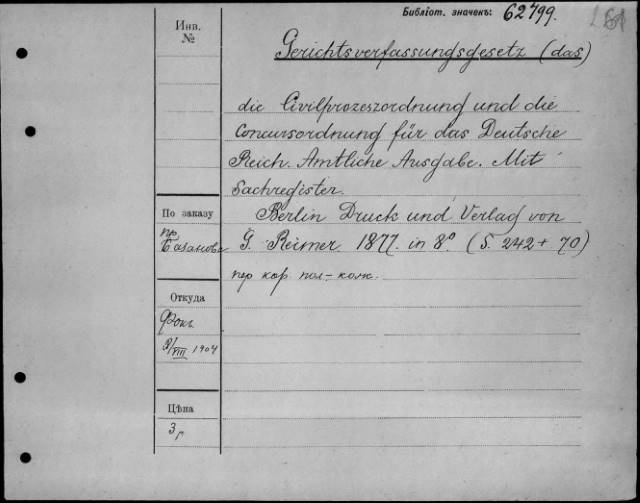 Библіот. значекъ: 62799.
Инв.
№
Gerichtsverfassungsgesetz (das)
die Civilprozeszordnung und die
Concursordnung für das Deutsche
Reich. Amtliche Ausgabe. Mit
Sachregister.
По заказу
пр.
Базанова
Berlin Druck und Verlag von
G. Reimer 1877. in 8° (S. 242 + 70)
пер кор пол-кож.
Откуда
Фокъ
/VIII 1904
Цѣна
3 р